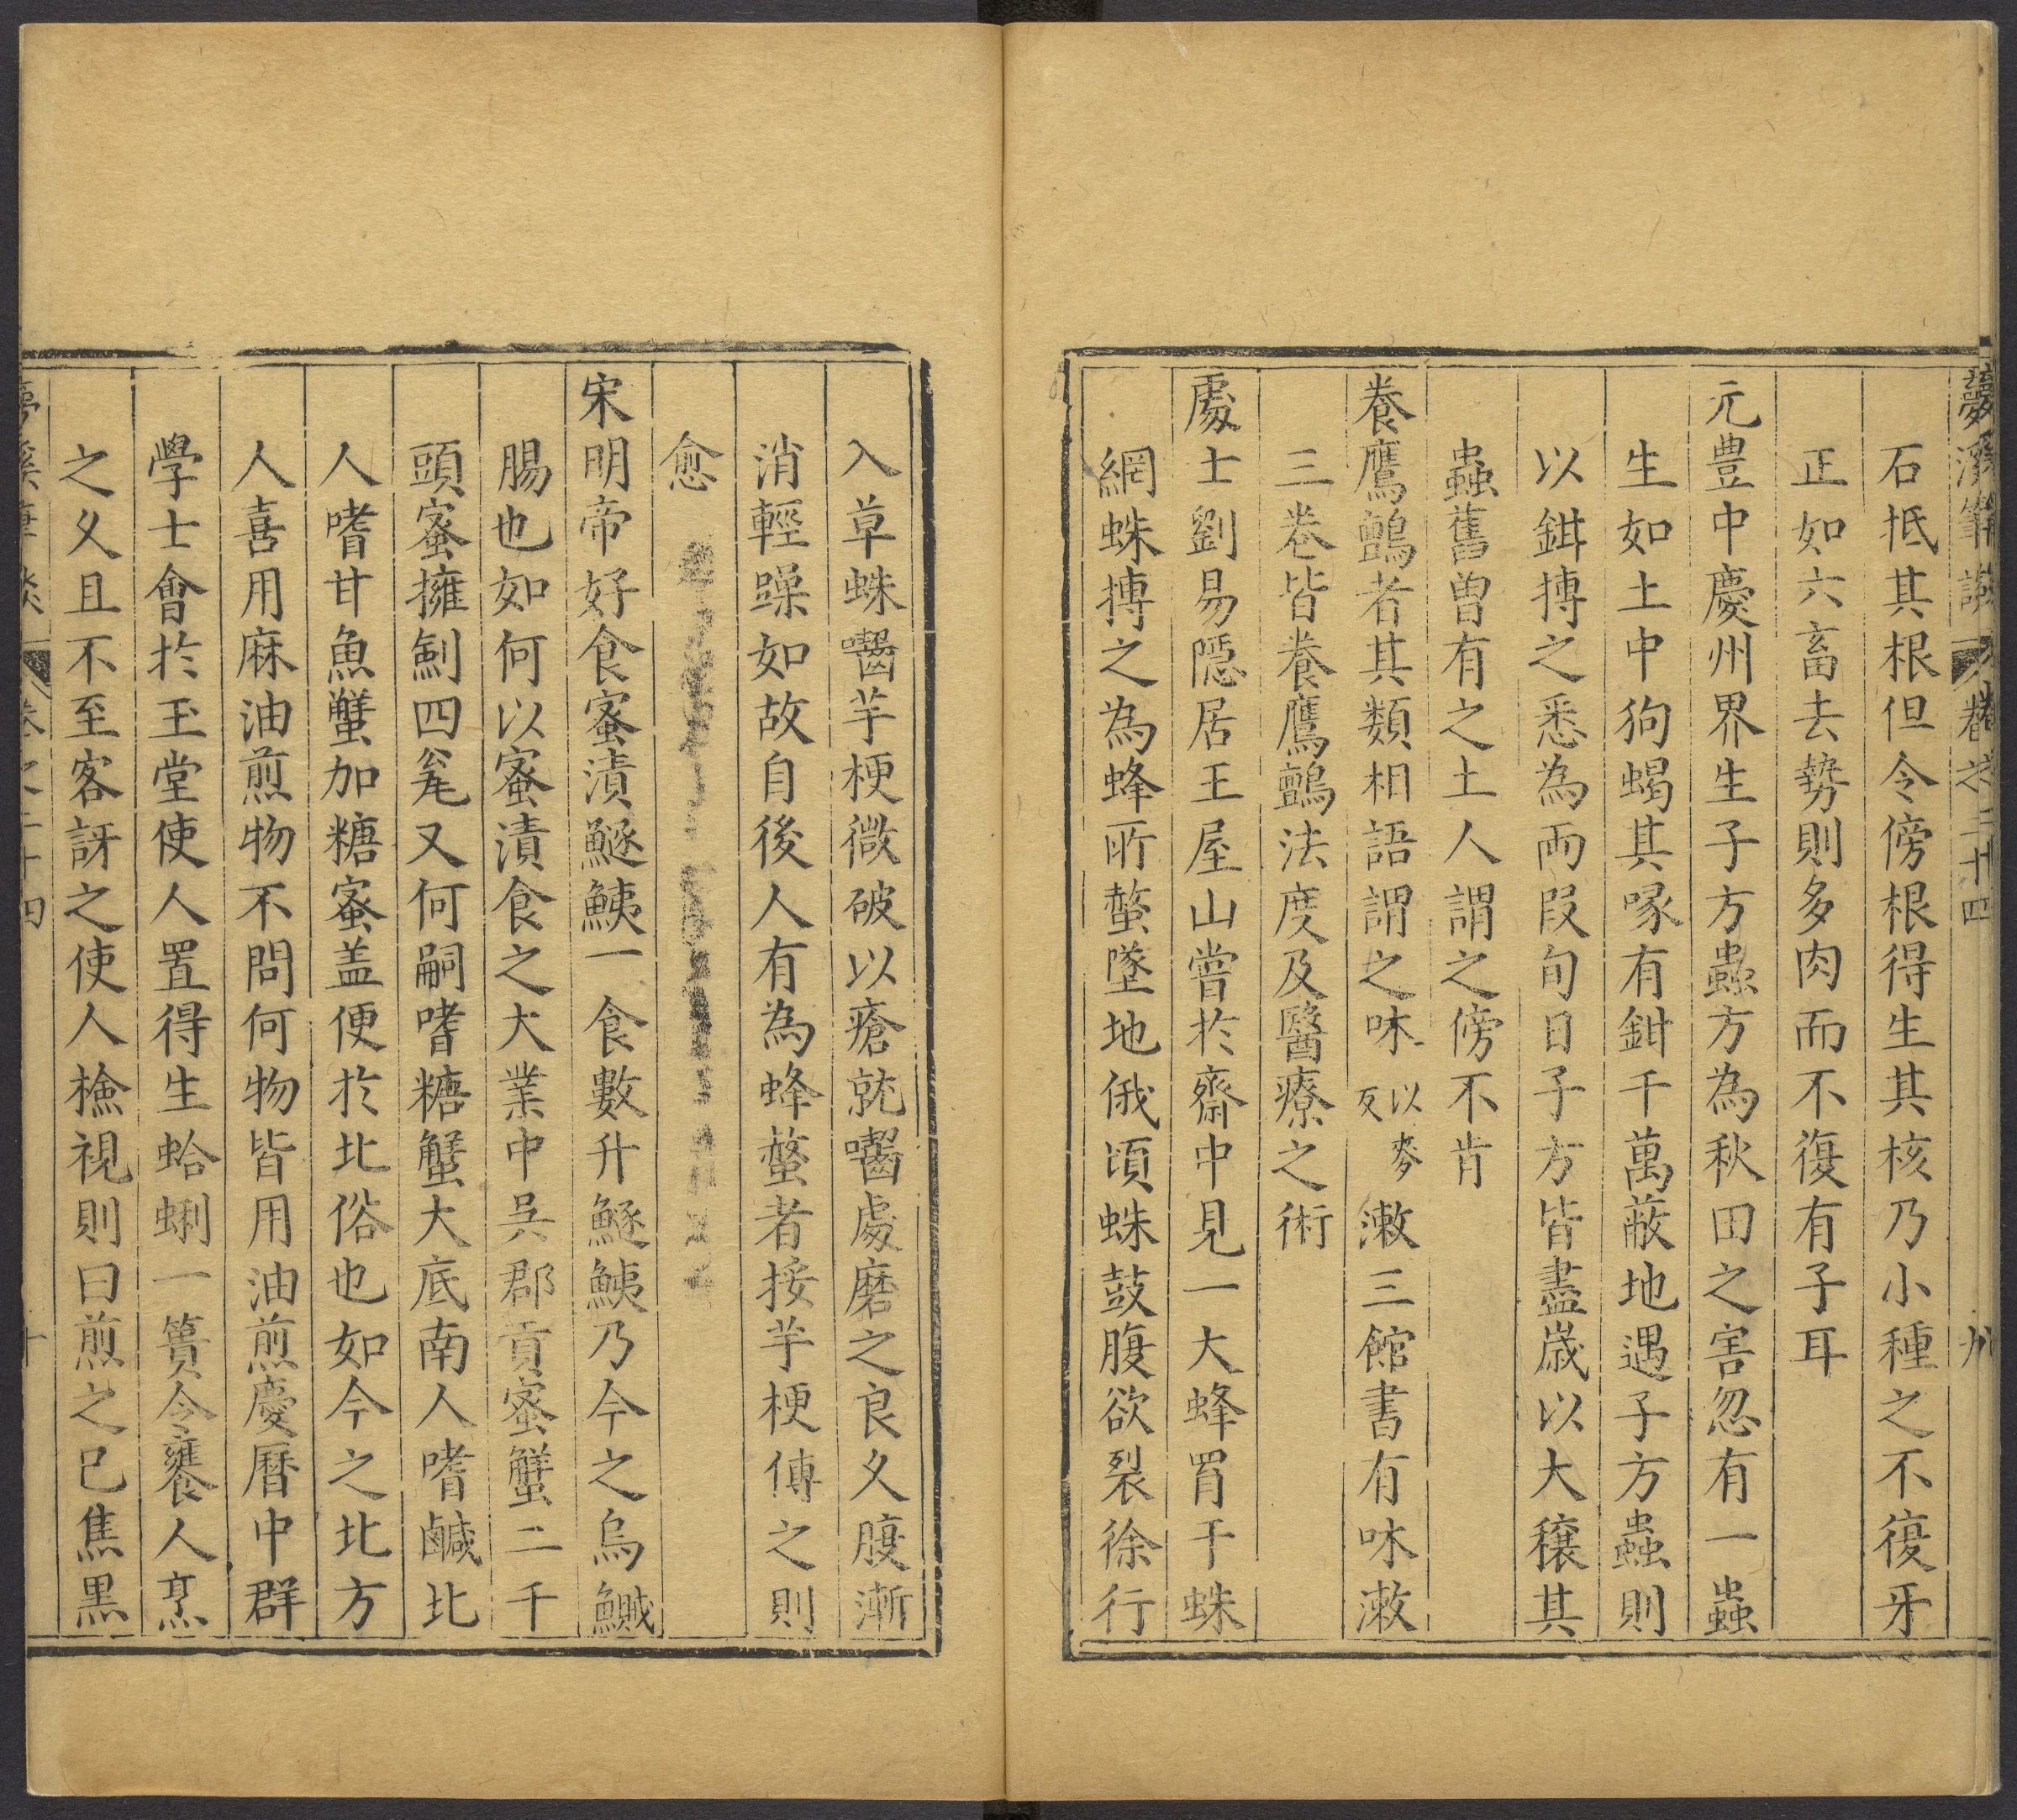 夢溪筆談 卷之二十四 九
石抵其根但令傍根得生其核乃小種之不復牙
正如六畜去勢則多肉而不復有子耳
元豊中慶州界生子方蟲方為秋田之害忽有一蟲
生如土中狗蝎其喙有鉗千萬蔽地遇子方蟲則
以鉗搏之悉為兩段旬日子方皆盡歲以大穰其
蟲舊曾有之土人謂之傍不肯
養鷹鸇者其類相語謂之𠴨以麥反漱三館書有𠴨漱
三卷皆養鷹鸇法度及醫療之術
處士劉易隱居王屋山嘗於齋中見一大蜂罥于蛛
網蛛搏之為蜂所螫墜地俄頃蛛鼓腹欲裂徐行
入草蛛嚙芋梗微破以瘡就嚙處磨之良久腹漸
消輕躁如故自後人有為蜂螫者挼芋梗傅之則
愈
宋明帝好食蜜漬鱁鮧一食數升鱁鮧乃今之烏鰂
腸也如何以蜜漬食之大業中吳郡貢蜜蟹二千
頭蜜擁劍四瓮又何嗣嗜糖蟹大底南人嗜鹹北
人嗜甘魚蟹加糖蜜盖便於北俗也如今之北方
人喜用麻油煎物不問何物皆用油煎慶曆中群
學士會於玉堂使人置得生蛤蜊一簣令饔人烹
之久且不至客訝之使人檢視則曰煎之已焦黑
夢溪筆談 卷之二十四 十